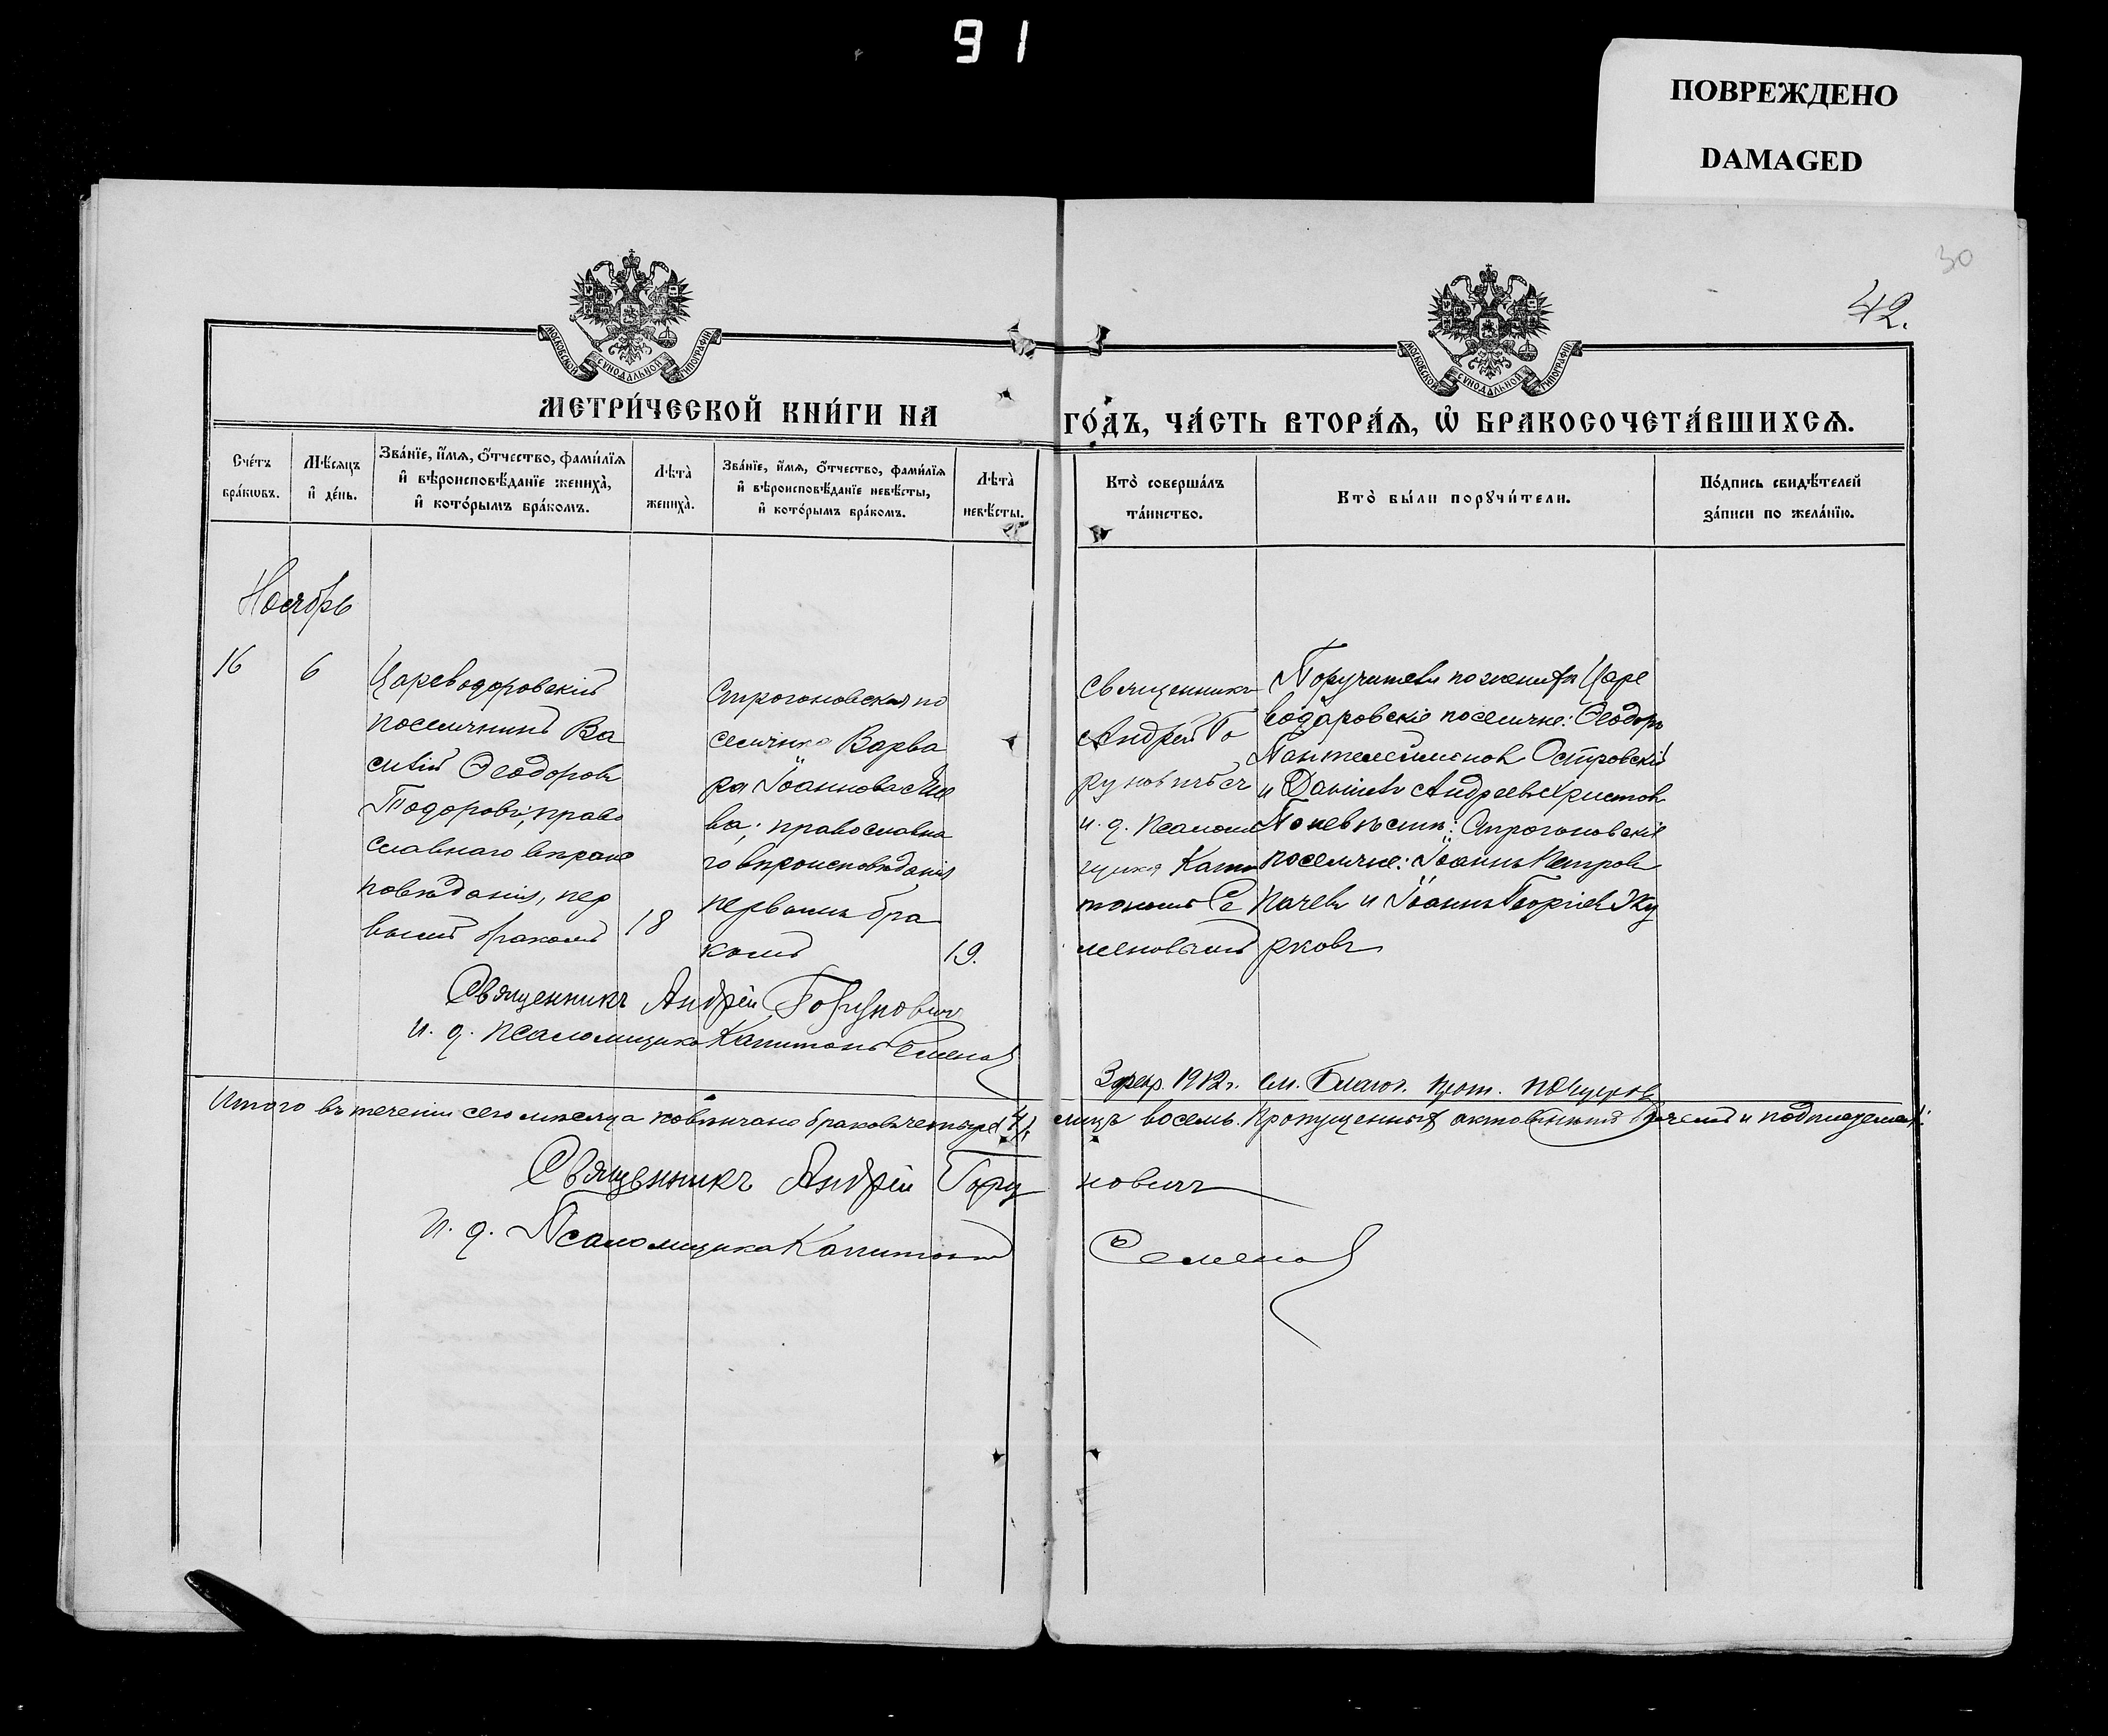 91
ПОВРЕЖДЕНО
DAMAGED
30
42.
МОСКОВСКОЙ СУНОДАЛЬНОЙ ТИПОГРАФІИ
МОСКОВСКОЙ СУНОДАЛЬНОЙ ТИПОГРАФІИ
МЕТРИ́ЧЕСКОЙ КНИ́ГИ НА
ГО́ДЪ, ЧА́СТЬ ВТОРА́Ѧ, Ѡ҆ БРАКОСОЧЕТА́ВШИХСѦ.
Сче́тъ
бра́кѡвъ.
Мѣ́сяцъ
и҆ де́нь.
Зва́нїе, и҆́мѧ, ѻ҆́тчество, фами́лїѧ
и҆ вѣроисповѣ́данїе жениха̀,
и҆ кото́рымъ бра́комъ.
Лѣта̀
жениха̀.
Зва́нїе, и҆́мѧ, ѻ҆́тчество, фами́лїѧ
и҆ вѣроисповѣ́данїе невѣ́сты,
и҆ кото́рымъ бра́комъ.
Лѣта̀
невѣ́сты.
Кто̀ соверша́лъ
та́инство.
Кто̀ бы́ли порꙋчи́тели.
По́дпись свидѣ́телей
за́писи по жела́нїю.
Ноябрь
16
6
Цареводоровскій
поселянинъ Ва
силій Ѳеодоровъ
Тодоровъ, право
славнаго вѣроис
повѣданія, пер
вымъ бракомъ
18
Строгоновская по
селянка Варва
ра Іоаннова
ва; православна
го вѣроисповѣданія
первымъ бра
комъ
19.
Священникъ
Андрей Го
руновичъ съ
и. д. Псалом
щика Капи
тономъ Се
меновымъ
Поручители по женихѣ Царе
водаровскіе поселяне: Ѳеодоръ
Пантелеимоновъ Островскій
и Даніилъ Андреевъ Христовъ
По невѣстѣ: Строгоновскіе
поселяне: Іоаннъ Петровъ
Пачевъ и Іоаннъ Георгіевъ Жу
рковъ
Священникъ Андрей Горуновичъ
и. д. псаломщика Капитонъ Семеновъ
3 февр. 1912 г. см. Благоч. прот.
Итого въ теченіи сего мѣсяца повѣнчано браковъ четыре 4/.
лицъ восемь. Пропущенныхъ актовъ нѣтъ въ чемъ и подписуемся:
Священникъ Андрей Гору
новичъ
и. д. Псаломщика Капитонъ
Семеновъ